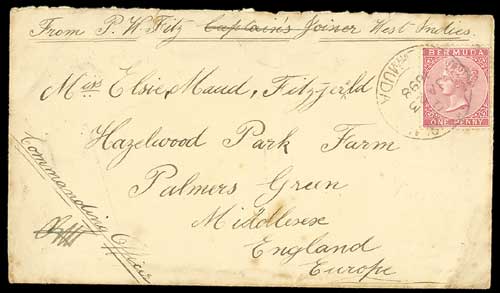 From P. W. Fitz Captain's Joiner West Indies.
Miss Elsie, Maud, Fitzgerald
Hazelwood Park Farm
Palmers Green
Middlesex
England
Europe
Commanding Officer
BERMUDA
ONE PENNY